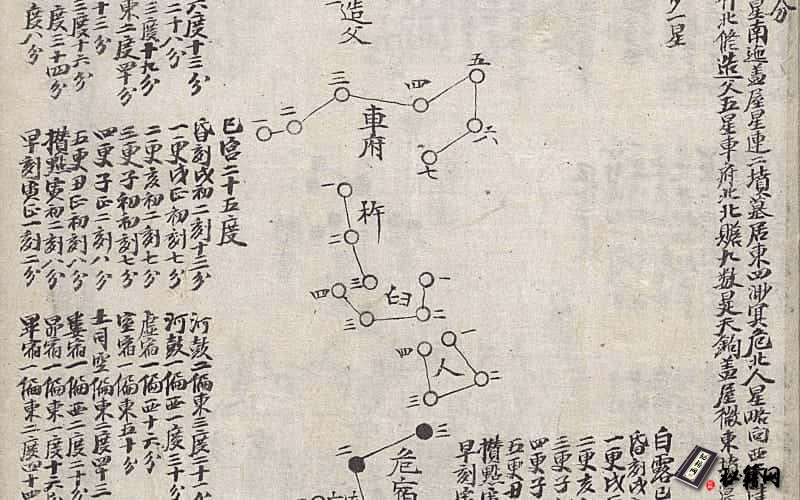 分
星南迤蓋屋星連二墳墓居東四渺冥危北人星略向西
北修造父五星車府北北贍九數是天鉤蓋屋微東
一星
造父
車府
一
二
三
四
五
六
七
杵
一
二
三
臼
一
二
三
四
人
一
二
三
四
危宿
二
三
白露
昏刻戌
一更戌
二更亥
三更子
四更子
五更丑
攢點寅
早刻寅
六度十三分
二十八分
三度十九分
東二度四十分
十三分
三度十六分
度二十四分
度八分
巳宮二十五度
昏刻戌初二刻十三分
一更戌正初刻七分
二更亥初二刻七分
三更子初初刻七分
四更子正二刻八分
五更丑正初刻八分
攢點寅初二刻八分
早刻寅正一刻二分
河鼓二偏東三度二十一
河鼓一偏西一度三十分
虛宿一偏西十六分
室宿一偏東五十分
土司空偏東三度四十二
婁宿一偏西二度二十
昴宿一偏東一度十六分
畢宿一偏東二度四十四
秘籍网